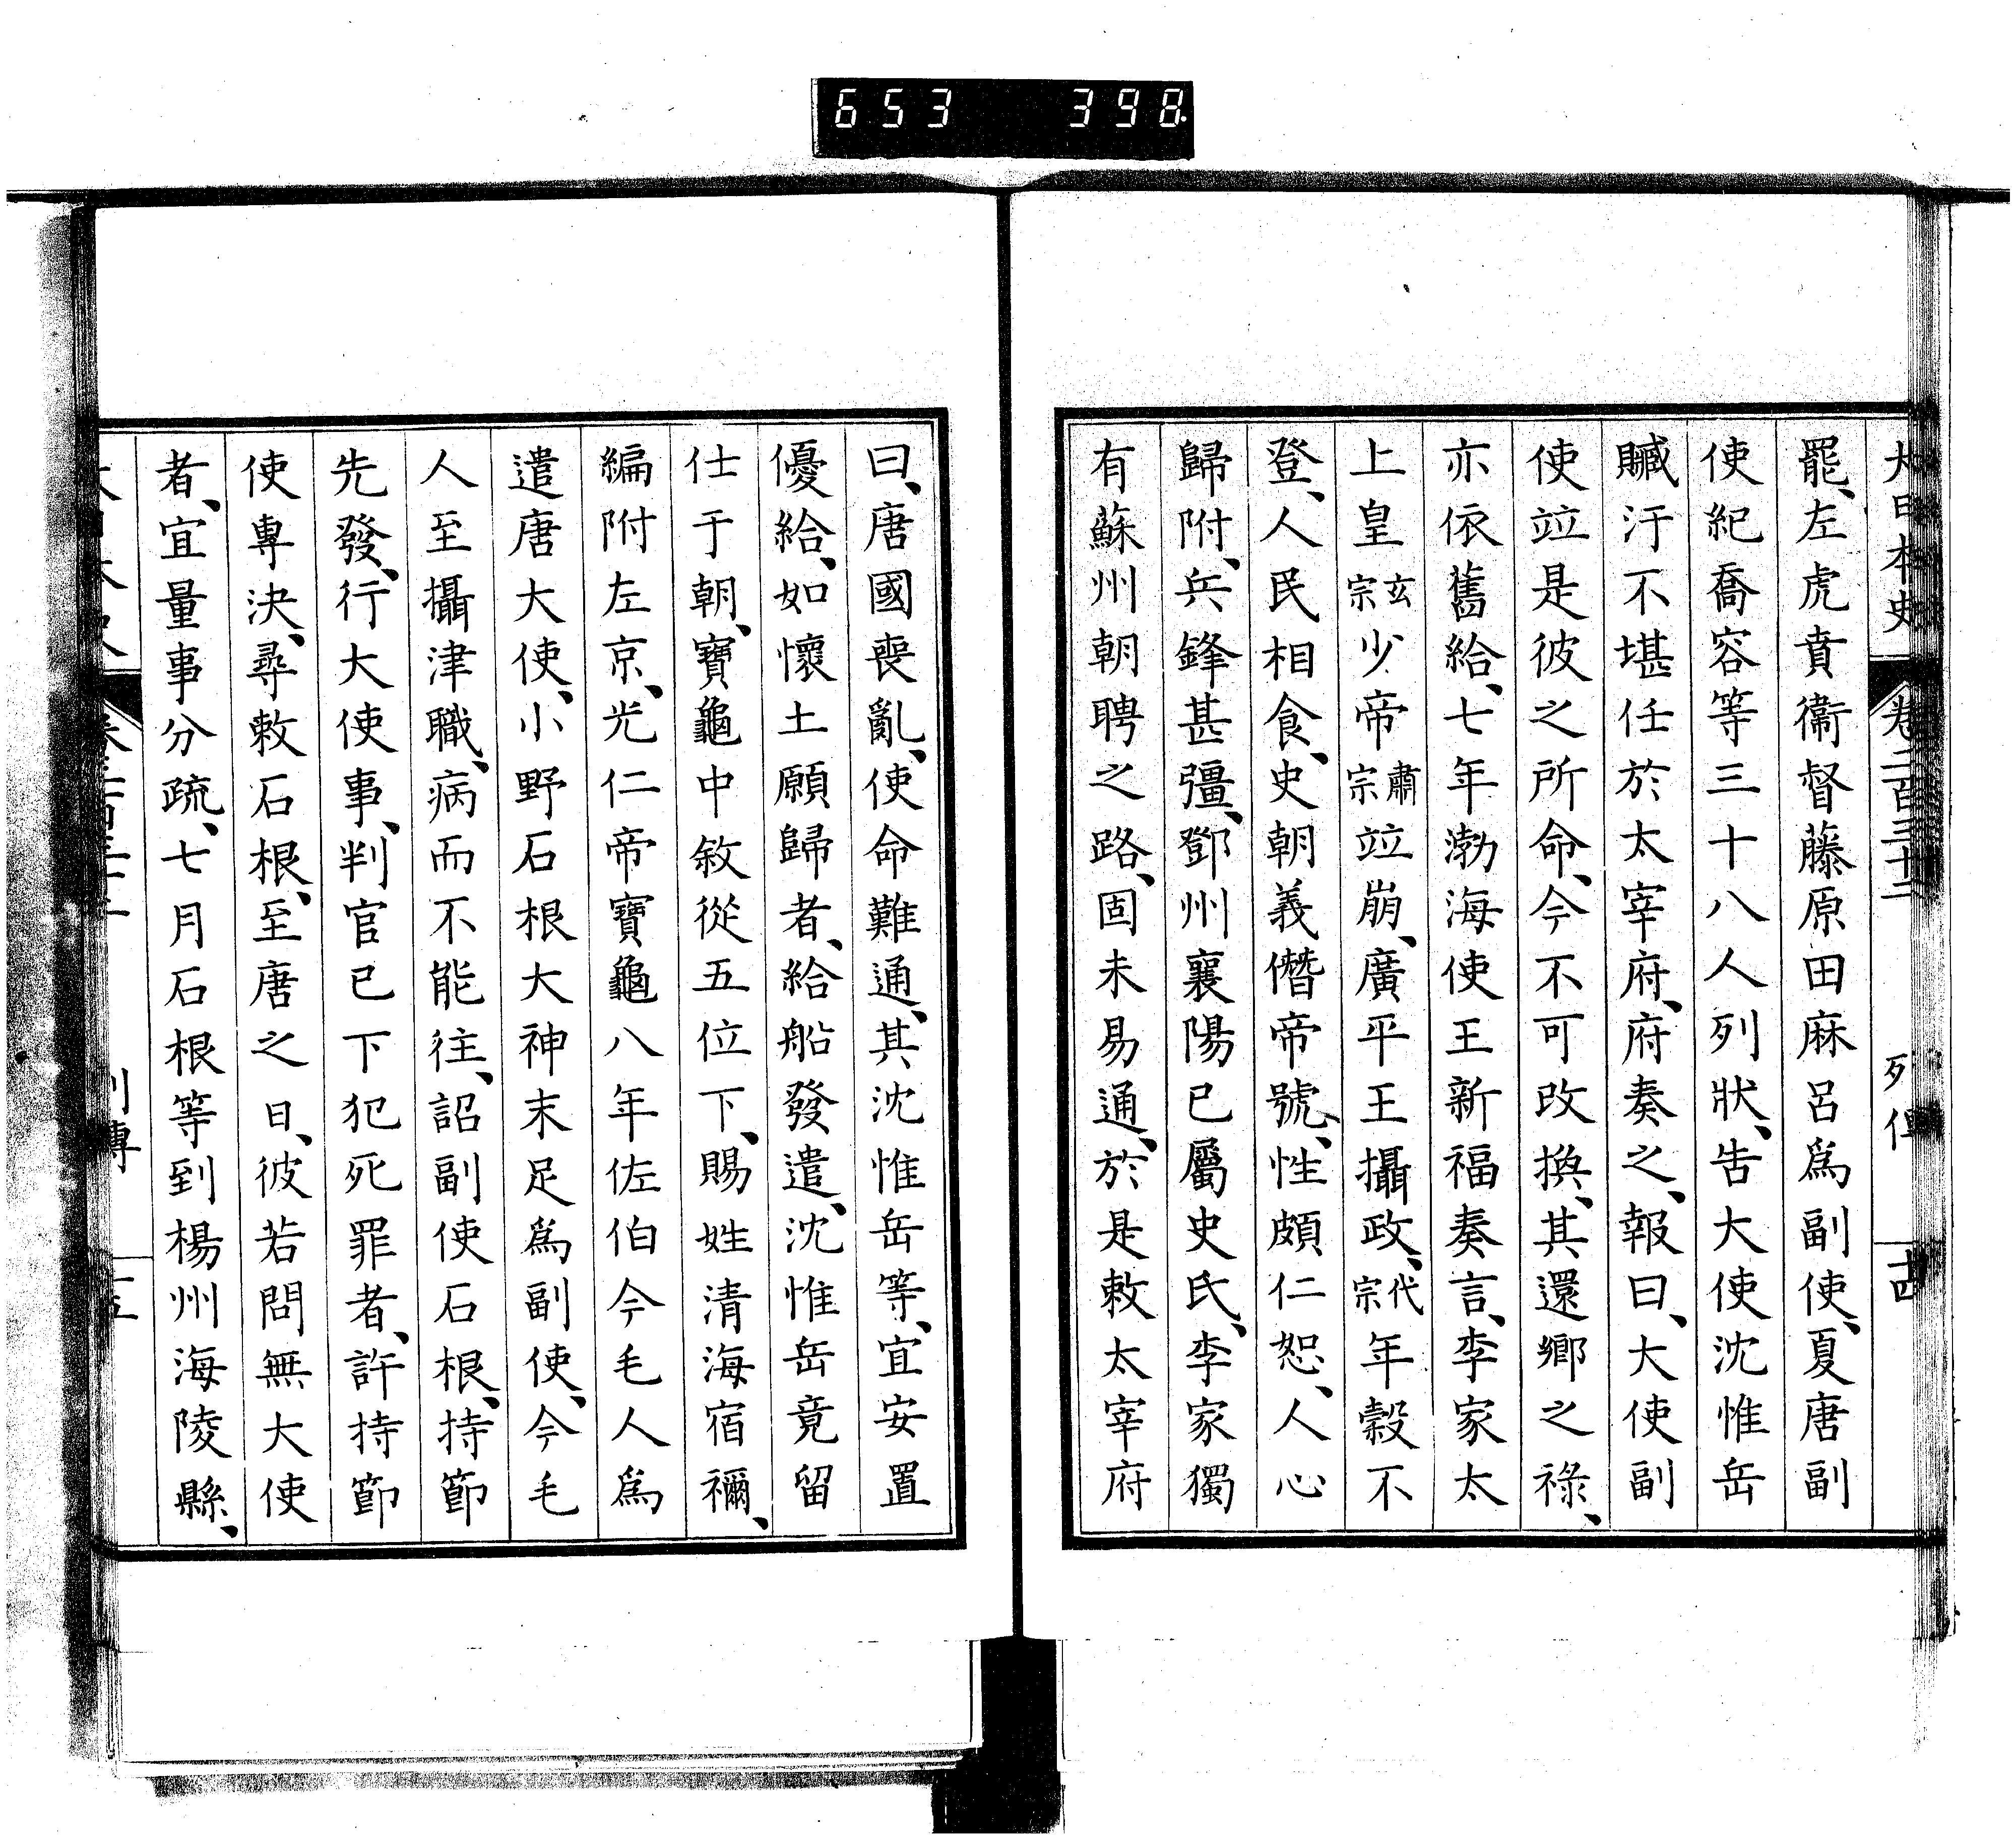 653 398
大日本史 卷二百四十二 列傳 十四
罷、左虎賁衞督藤原田麻呂爲副使、夏唐副
使紀喬容等三十八人列狀、告大使沈惟岳
贓汙不堪任於太宰府、府奏之、報曰、大使副
使竝是彼之所命、今不可改換、其還鄉之祿、
亦依舊給、七年渤海使王新福奏言、李家太
上皇玄宗少帝肅宗竝崩、廣平王攝政、代宗年穀不
登、人民相食、史朝義僭帝號、性頗仁恕、人心
歸附、兵鋒甚彊、鄧州襄陽已屬史氏、李家獨
有蘇州朝聘之路、固未易通、於是敕太宰府
曰、唐國喪亂、使命難通、其沈惟岳等、宜安置
優給、如懷土願歸者、給船發遣、沈惟岳竟留
仕于朝、寶龜中敘從五位下、賜姓清海宿禰、
編附左京、光仁帝寶龜八年佐伯今毛人爲
遣唐大使、小野石根大神末足爲副使、今毛
人至攝津職、病而不能往、詔副使石根、持節
先發、行大使事、判官已下犯死罪者、許持節
使專決、尋敕石根、至唐之日、彼若問無大使
者、宜量事分疏、七月石根等到楊州海陵縣、